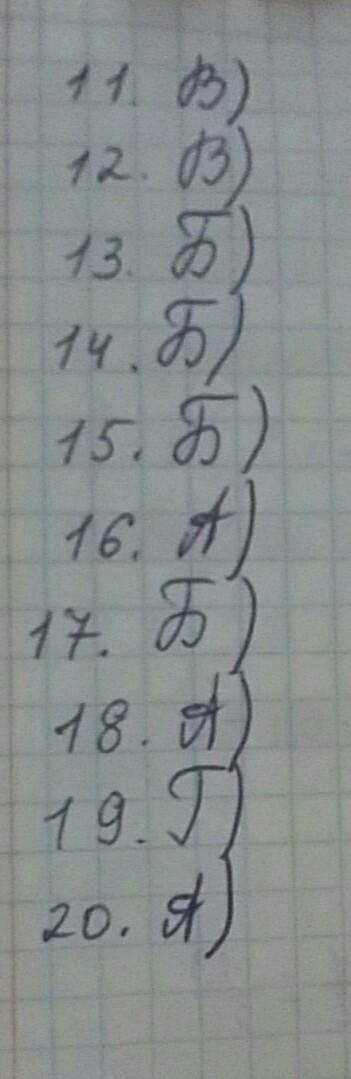 11. В)
12. В)
13. Б)
14. Б)
15. Б)
16. А)
17. Б)
18. А)
19. Г)
20. А)